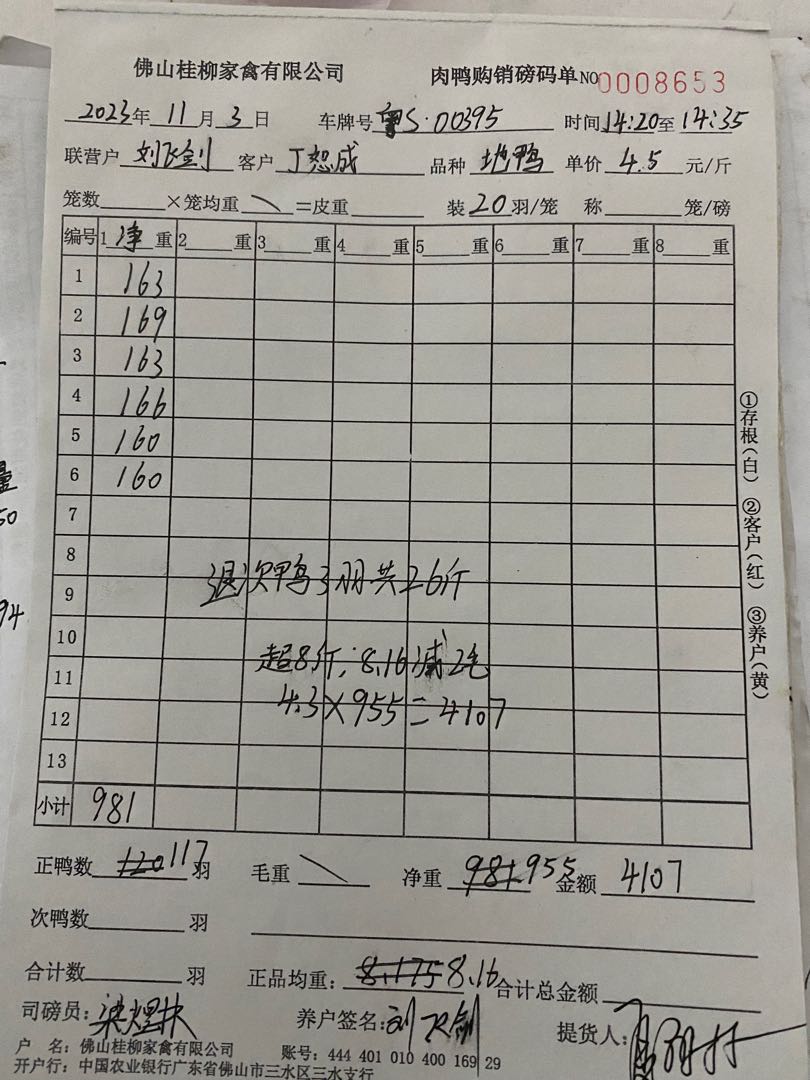 佛山桂柳家禽有限公司 肉鸭购销磅码单 NO 0008653
2023年 11月 3日 车牌号 粤S·00395 时间 14:20至 14:35
联营户 刘飞剑 客户 丁恕成 品种 地鸭 单价 4.5 元/斤
笼数 ×笼均重 \ =皮重 装 20 羽/笼 称 笼/磅
编号 1 净 重 2 重 3 重 4 重 5 重 6 重 7 重 8 重
1 163
2 169
3 163
4 166
5 160
6 160
7
8
退次鸭3羽共26斤
9
10
超8斤,8.16减2毛
11
4.3×955=4107
12
13
小计 981
①存根(白) ②客户(红) ③养户(黄)
正鸭数 120 117 羽 毛重 \ 净重 981 955 金额 4107
次鸭数 羽
合计数 羽 正品均重: 8.175 8.16 合计总金额
司磅员: 梁煌扶 养户签名: 刘飞剑 提货人:
户 名: 佛山桂柳家禽有限公司 账号: 444 401 010 400 169 29
开户行: 中国农业银行广东省佛山市三水区三水支行
量
50
94